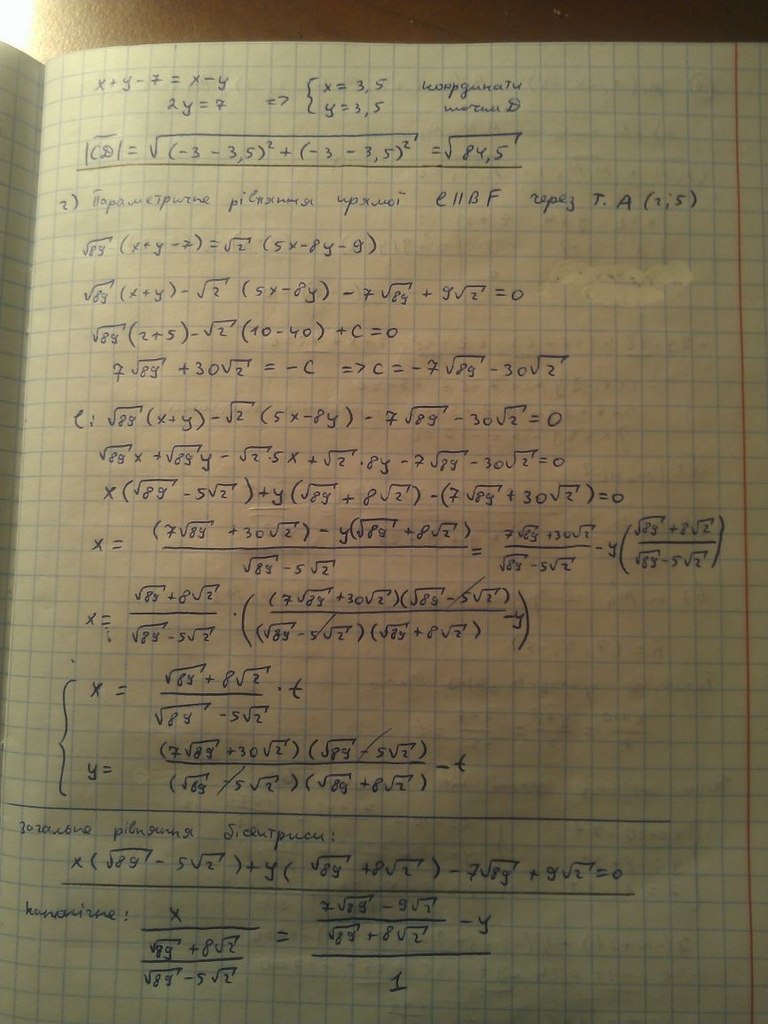 x+y-7 = x-y
2y = 7 => { x = 3,5 координати
y = 3,5 точки D
|CD| = √((-3 - 3,5)² + (-3 - 3,5)²) = √84,5
2) Параметричне рівняння прямої l || BF через т. A (2;5)
√89 (x+y-7) = √2 (5x-8y-9)
√89 (x+y) - √2 (5x-8y) - 7√89 + 9√2 = 0
√89 (2+5) - √2 (10-40) + C = 0
7√89 + 30√2 = -C => C = -7√89 - 30√2
l: √89 (x+y) - √2 (5x-8y) - 7√89 - 30√2 = 0
√89 x + √89 y - √2·5x + √2·8y - 7√89 - 30√2 = 0
x(√89 - 5√2) + y(√89 + 8√2) - (7√89 + 30√2) = 0
x = ((7√89 + 30√2) - y(√89 + 8√2)) / (√89 - 5√2) = (7√89 + 30√2) / (√89 - 5√2) - y((√89 + 8√2) / (√89 - 5√2))
x = (√89 + 8√2) / (√89 - 5√2) · ((7√89 + 30√2)(√89 - 5√2) / (√89 - 5√2)(√89 + 8√2) - y)
{ x = (√89 + 8√2) / (√89 - 5√2) · t
y = (7√89 + 30√2)(√89 - 5√2) / (√89 - 5√2)(√89 + 8√2) - t
Загальне рівняння бісектриси:
x(√89 - 5√2) + y(√89 + 8√2) - 7√89 + 9√2 = 0
Канонічне: x / ((√89 + 8√2) / (√89 - 5√2)) = ((7√89 - 9√2) / (√89 + 8√2) - y) / 1